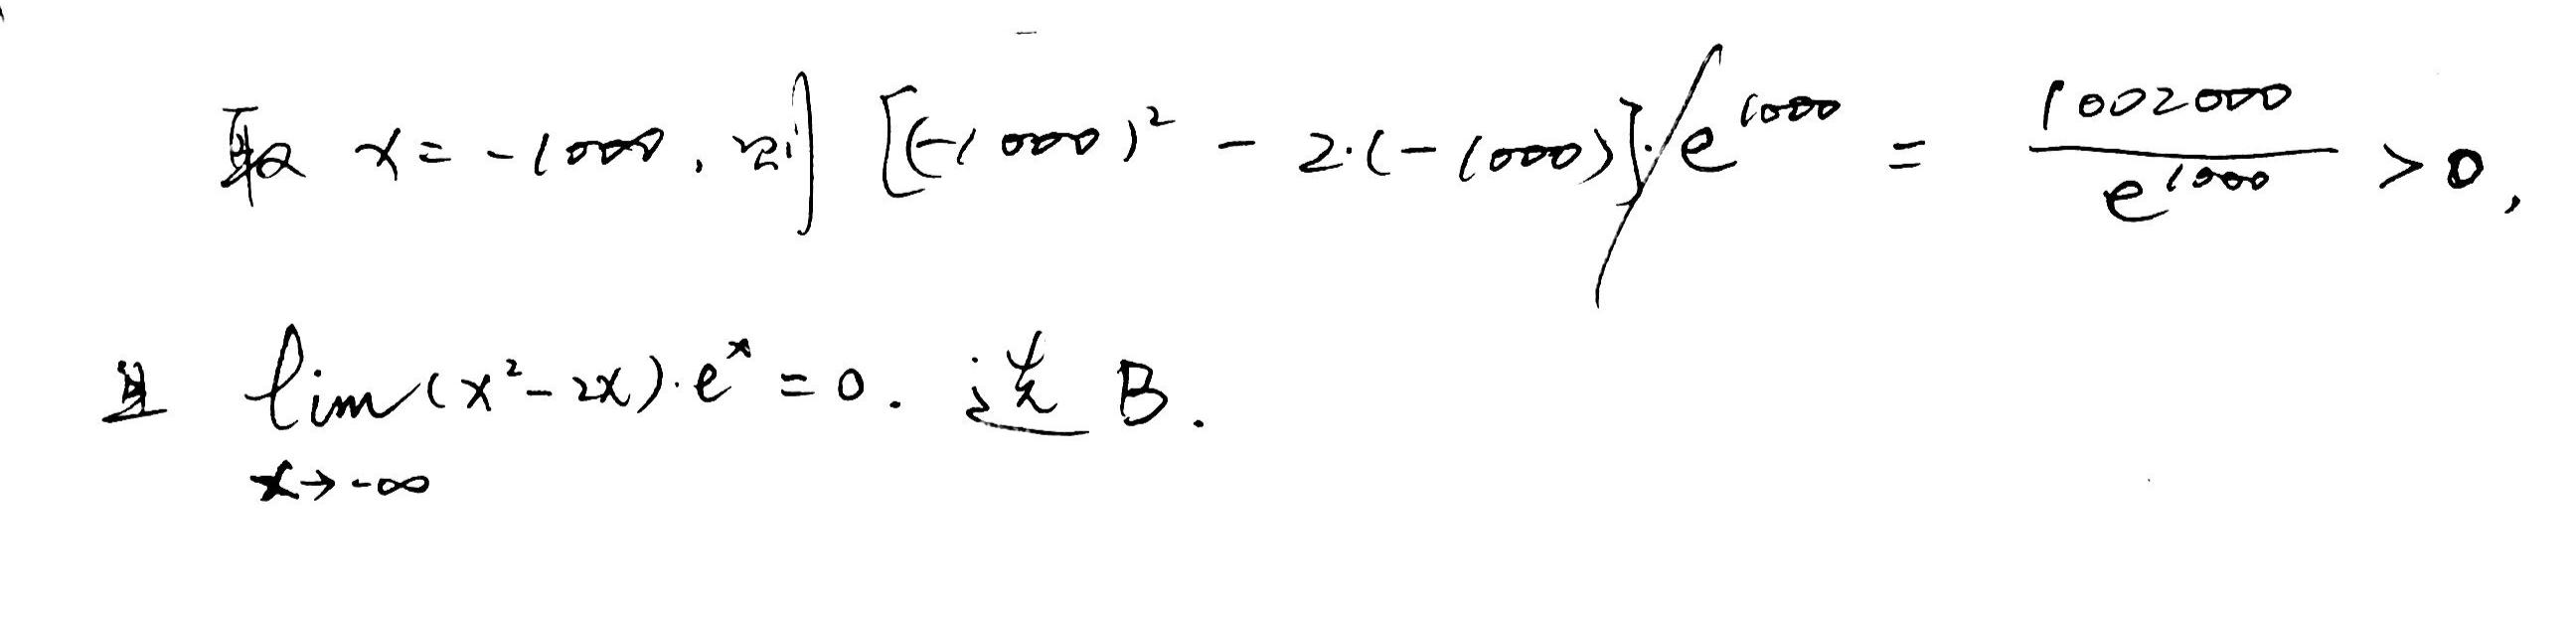 取 x = -1000, 则 [(-1000)² - 2·(-1000)]/e¹⁰⁰⁰ = 1002000/e¹⁰⁰⁰ > 0,
且 lim(x²-2x)·eˣ = 0. 选 B.
x→-∞